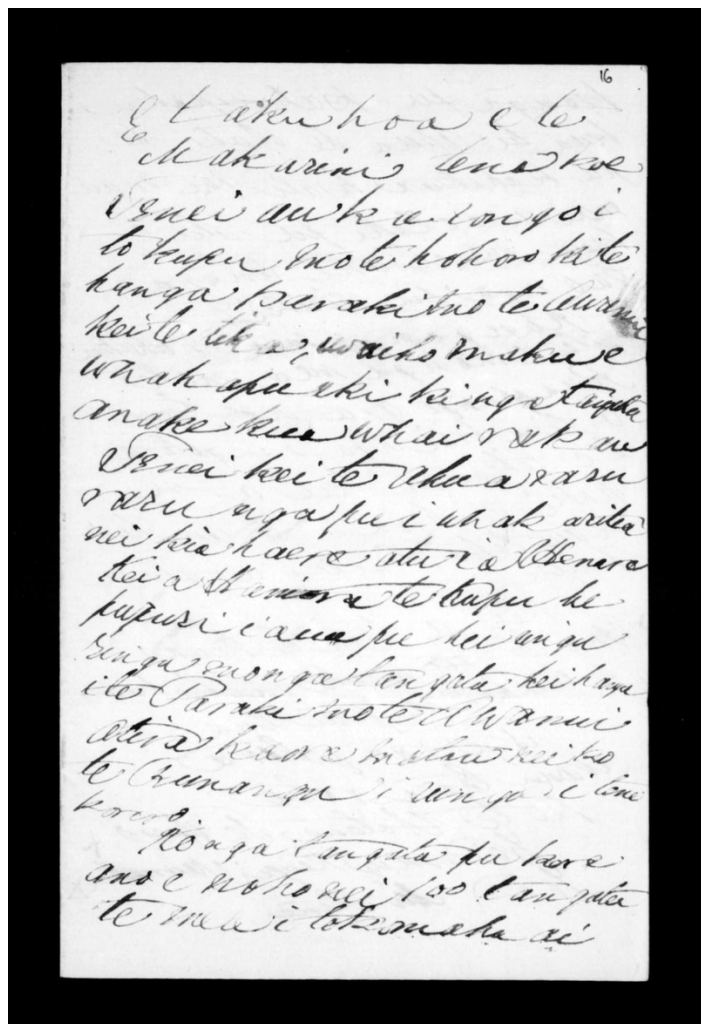 16
E taku hoa e te
Makarini tena koe
Tenei au ka rongo i
to kupu mo te hohoro ki te
hanga paraki mo te Awanui
kei te tika, waiho maku e
whakapuaki ki nga tangata
anake kua whai rakau
Tenei kei te aku a raru
raru nga pu i whakaritea
nei kia haere atu i a Henare
Kei a te kupu he
pupuri i aua pu hei
ringa mo nga tangata hei hanga
i te Paraki mo te Awanui
otira kaore matau kei ko
te Runanga i runga i tena
korero
Ko nga tangata pu kore
ano e noho nei 100 tangata
te mea i ai